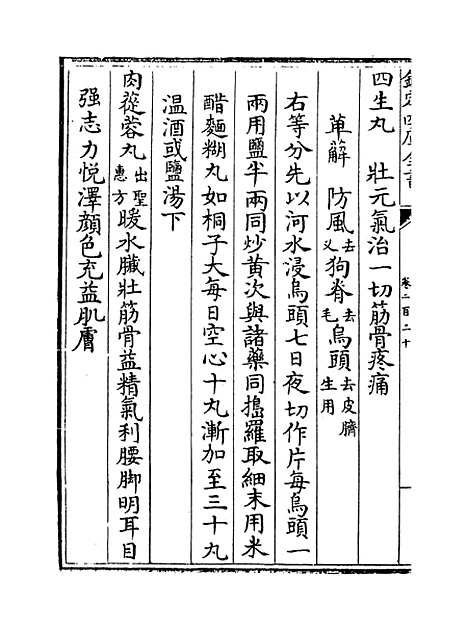 欽定四庫全書
卷二百二十
四生丸 壯元氣治一切筋骨疼痛
萆薢 防風去义 狗脊去毛 烏頭去皮臍生用
右等分先以河水浸烏頭七日夜切作片每烏頭一
兩用鹽半兩同炒黃次與諸藥同搗羅取細末用米
醋麵糊丸如桐子大每日空心十丸漸加至三十丸
温酒或鹽湯下
肉蓯蓉丸出聖惠方 暖水臟壯筋骨益精氣利腰脚明耳目
强志力悅澤顔色充益肌膚